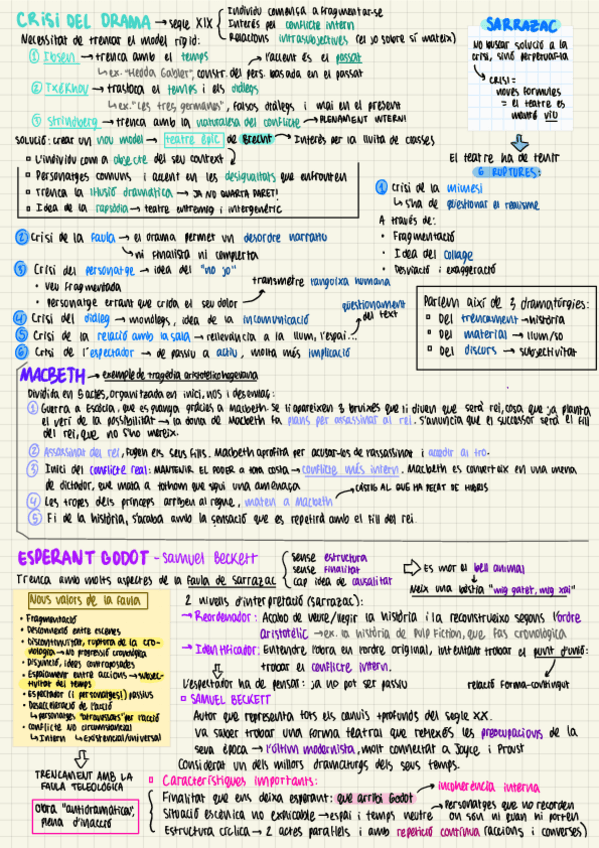 CRISI DEL DRAMA → segle XIX
Individu comença a fragmentar-se
Interès pel conflicte intern
Relacions intrasubjectives (el jo sobre sí mateix)
Necessitat de trencar el model rígid:
① Ibsen → trenca amb el temps → l'accent és el passat
↳ ex. "Hedda Gabler", constr. del pers. basada en el passat
② Txékhov → trasbalsa el temps i els diàlegs
↳ ex. "Les tres germanes", falsos diàlegs i mai en el present
③ Strindberg → trenca amb la naturalesa del conflicte → PLENAMENT INTERN
solució: crear un nou model → teatre èpic de Brecht → Interès per la lluita de classes
▫ L'individu com a objecte del seu context
▫ Personatges comuns i accent en les desigualtats que enfronten
▫ Trenca la il·lusió dramàtica → JA NO QUARTA PARET!
▫ Idea de la rapsòdia → teatre entremig i intergenèric
SARRAZAC
No buscar solució a la
crisi, sinó perpetuar-la
↳ crisi =
noves formules
= el teatre es
manté viu
El teatre ha de tenir
6 RUPTURES:
① Crisi de la mimesi
↳ s'ha de qüestionar el realisme
A través de:
• Fragmentació
• Idea del collage
• Desviació i exageració
② Crisi de la faula → el drama permet un desordre narratiu
↳ ni finalista ni completa
③ Crisi del personatge → idea del "no jo"
• veu fragmentada
• personatge errant que crida el seu dolor → transmetre l'angoixa humana
④ Crisi del diàleg → monòlegs, idea de la incomunicació
qüestionament del text
⑤ Crisi de la relació amb la sala → rellevància a la llum, l'espai...
⑥ Crisi de l'espectador → de passiu a actiu, molta més implicació
Parlem així de 3 dramatúrgies:
▫ Del trencament → història
▫ Del material → llum/so
▫ Del discurs → subjectivitat
MACBETH → exemple de tragèdia aristotelicohegeliana
Dividida en 5 actes, organitzada en inici, nus i desenllaç:
① Guerra a Escòcia, que es guanya gràcies a Macbeth. Se li apareixen 3 bruixes que li diuen que serà rei, cosa que ja planta
el verí de la possibilitat → la dona de Macbeth fa plans per assassinar al rei. S'anuncia que el successor serà el fill
del rei, que no s'ho mereix.
② Assassinat del rei, fugen els seus fills. Macbeth aprofita per acusar-los de l'assassinat i accedir al tro.
③ Inici del conflicte real: MANTENIR EL PODER A TOTA COSTA → conflicte més intern. Macbeth es converteix en una mena
de dictador, que mata a tothom que sigui una amenaça
④ Les tropes dels prínceps arriben al regne, maten a Macbeth → CÀSTIG AL QUE HA PECAT DE HUBRIS
⑤ Fi de la història, s'acaba amb la sensació que es repetirà amb el fill del rei.
ESPERANT GODOT - Samuel Beckett
sense estructura
sense finalitat
cap idea de causalitat
Es mor el bell animal
Neix una bèstia "mig gatet, mig xai"
Trenca amb molts aspectes de la faula de Sarrazac
Nous valors de la faula
• Fragmentació
• Desconnexió entre escenes
• Discontinuïtat, ruptura de la cro-
nologia → NO progressió cronològica
• Disjunció, idees contraposades
• Espaiament entre accions → subjec-
tivitat del temps
• Espectador (i personatges!) passius
• Desacceleració de l'acció
↳ personatges "atravessats" per l'acció
• conflicte NO circumstancial
↳ Intern ↳ existencial/universal
TRENCAMENT AMB LA
FAULA TELEOLÒGICA
Obra "antidramàtica",
plena d'inacció
2 nivells d'interpretació (Sarrazac):
→ Reordenador: Acabo de veure/llegir la història i la reconstrueixo segons l'ordre
aristotèlic → ex. la història de Pulp Fiction, que fas cronològica
→ Identificador: Entendre l'obra en l'ordre original, intentant trobar el punt d'unió:
trobar el conflicte intern.
relació forma-contingut
L'espectador ha de pensar: ja no pot ser passiu
▫ SAMUEL BECKETT
Autor que representa tots els canvis + profunds del segle XX.
Va saber trobar una forma teatral que reflexés les preocupacions de la
seva època → l'últim modernista, molt connectat a Joyce i Proust
Considerat un dels millors dramaturgs dels seus temps.
▫ Característiques importants:
Finalitat que ens deixa esperant: que arribi Godot → incoherència interna
Situació escènica no explicable → espai i temps neutre → Personatges que no recorden
on són ni evan ni porten
Estructura cíclica → 2 actes paral·lels i amb repetició contínua (accions i converses)